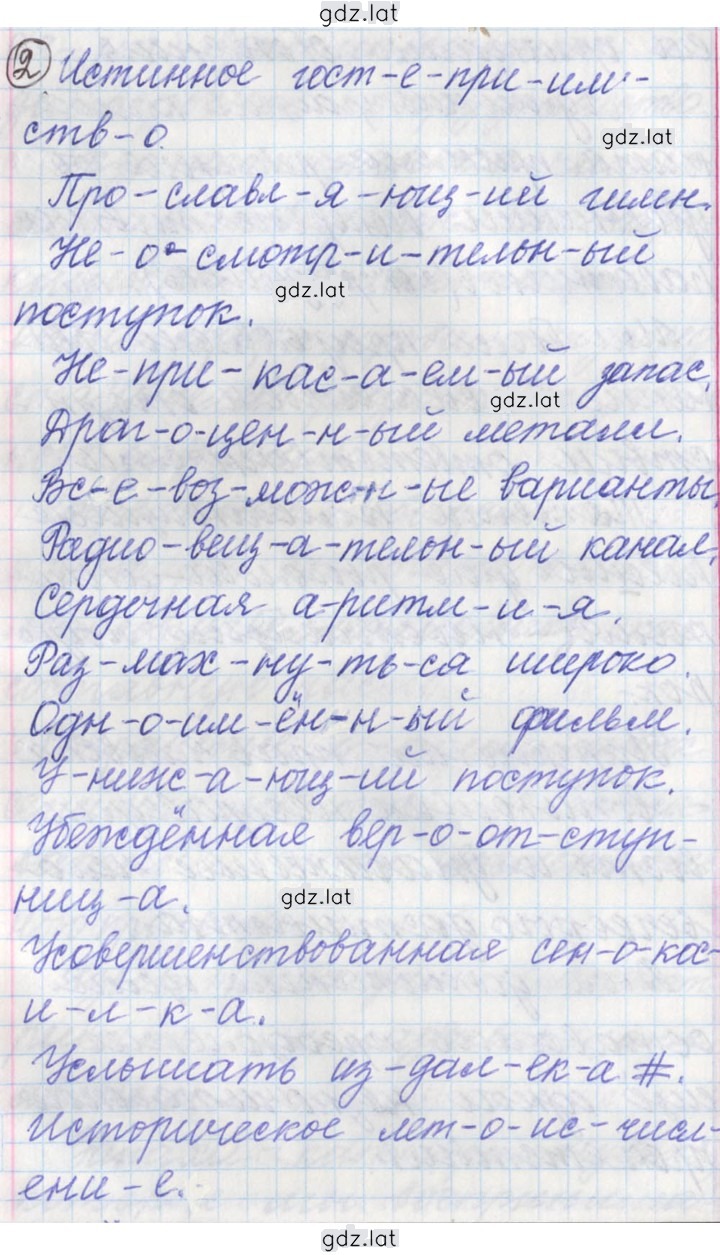 gdz.lat
2 Истинное гост-е-при-им-
ств-о.
gdz.lat
Про-славл-я-ющ-ий гимн.
Не-о-смотр-и-тельн-ый
gdz.lat
поступок.
Не-при-кас-а-ем-ый запас.
gdz.lat
Драг-о-цен-н-ый металл.
Вс-е-воз-мож-н-ые варианты.
Радио-вещ-а-тельн-ый канал.
Сердечная а-ритм-и-я.
Раз-мах-ну-ть-ся широко.
Одн-о-им-ён-н-ый фильм.
У-ниж-а-ющ-ий поступок.
Убеждённая вер-о-от-ступ-
ниц-а.
gdz.lat
Усовершенствованная сен-о-кос-
и-л-к-а.
Услышать из-дал-ек-а #.
Историческое лет-о-ис-числ-
ени-е.
gdz.lat